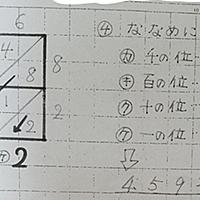 6
4
8
8
1
2
2
2
㋓ ななめに
㋕ 千の位…
㋖ 百の位…
㋗ 十の位…
㋘ 一の位…
⇩
4 5 9